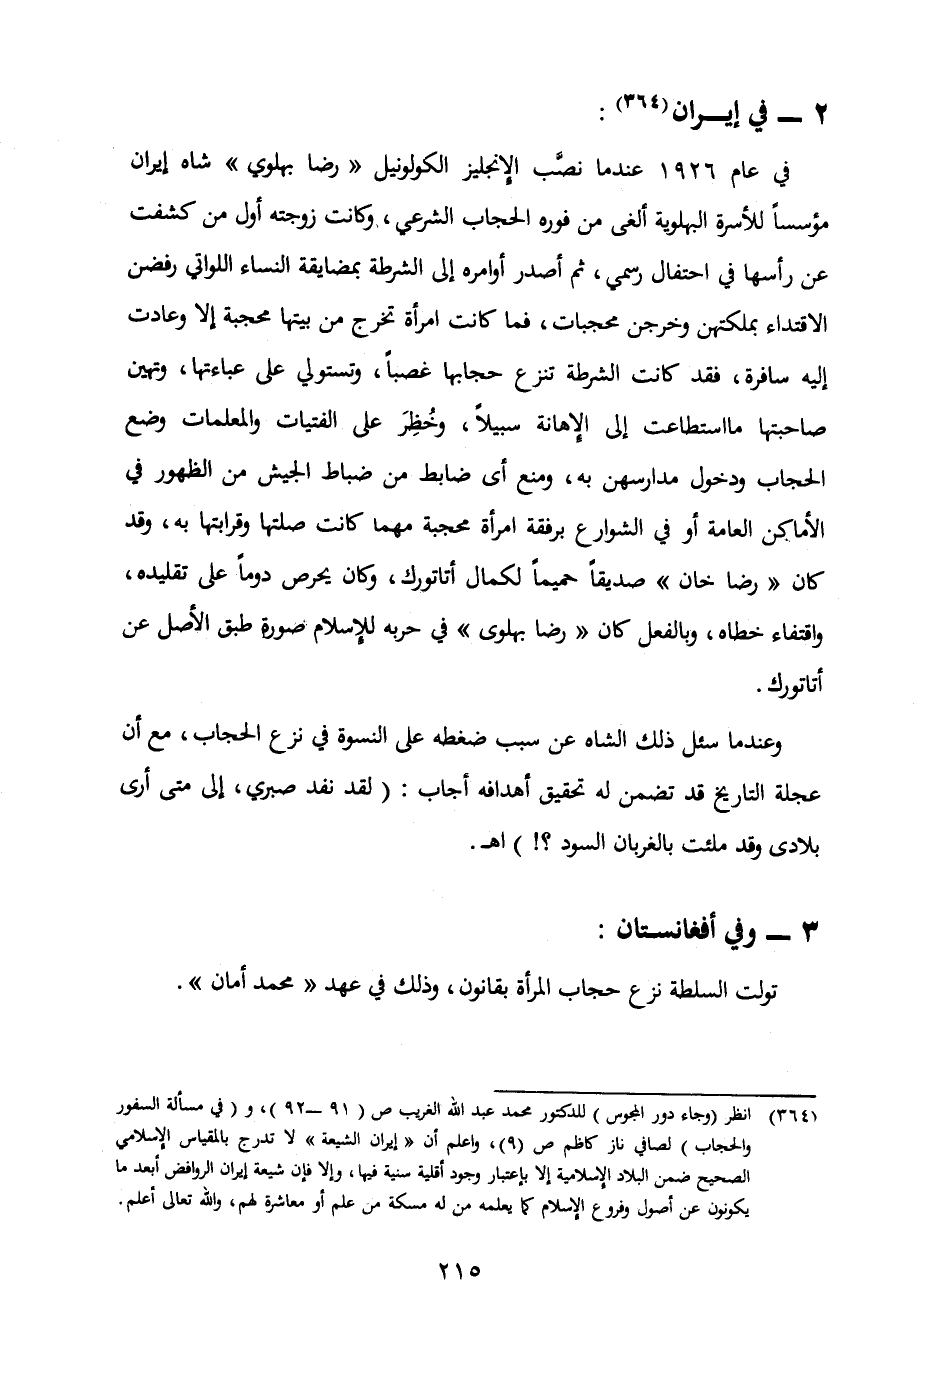 ٢ ــ في إيــران(٣٦٤) :
في عام ١٩٢٦ عندما نصَّب الإنجليز الكولونيل « رضا بهلوي » شاه إيران
مؤسساً للأسرة البهلوية ألغى من فوره الحجاب الشرعي ، وكانت زوجته أول من كشفت
عن رأسها في احتفال رسمي ، ثم أصدر أوامره إلى الشرطة بمضايقة النساء اللواتي رفضن
الاقتداء بملكتهن وخرجن محجبات ، فما كانت امرأة تخرج من بيتها محجبة إلا وعادت
إليه سافرة ، فقد كانت الشرطة تنزع حجابها غصباً ، وتستولي على عباءتها ، وتهين
صاحبتها مااستطاعت إلى الإهانة سبيلاً ، وحُظِرَ على الفتيات والمعلمات وضع
الحجاب ودخول مدارسهن به ، ومنع أى ضابط من ضباط الجيش من الظهور في
الأماكن العامة أو في الشوارع برفقة امرأة محجبة مهما كانت صلتها وقرابتها به ، وقد
كان « رضا خان » صديقاً حميماً لكمال أتاتورك ، وكان يحرص دوماً على تقليده ،
واقتفاء خطاه ، وبالفعل كان « رضا بهلوى » في حربه للإسلام صورة طبق الأصل عن
أتاتورك .
وعندما سئل ذلك الشاه عن سبب ضغطه على النسوة في نزع الحجاب ، مع أن
عجلة التاريخ قد تضمن له تحقيق أهدافه أجاب : ( لقد نفد صبري ، إلى متى أرى
بلادى وقد ملئت بالغربان السود ؟! ) اهـ .
٣ ــ وفي أفغانستان :
تولت السلطة نزع حجاب المرأة بقانون ، وذلك في عهد « محمد أمان » .
(٣٦٤) انظر (وجاء دور المجوس ) للدكتور محمد عبد الله الغريب ص ( ٩١ ــ ٩٢ ) ، و ( في مسألة السفور
والحجاب ) لصافي ناز كاظم ص (٩) ، واعلم أن « إيران الشيعة » لا تدرج بالمقياس الإسلامي
الصحيح ضمن البلاد الإسلامية إلا بإعتبار وجود أقلية سنية فيها ، وإلا فإن شيعة إيران الروافض أبعد ما
يكونون عن أصول وفروع الإسلام كما يعلمه من له مسكة من علم أو معاشرة لهم ، والله تعالى أعلم .
٢١٥